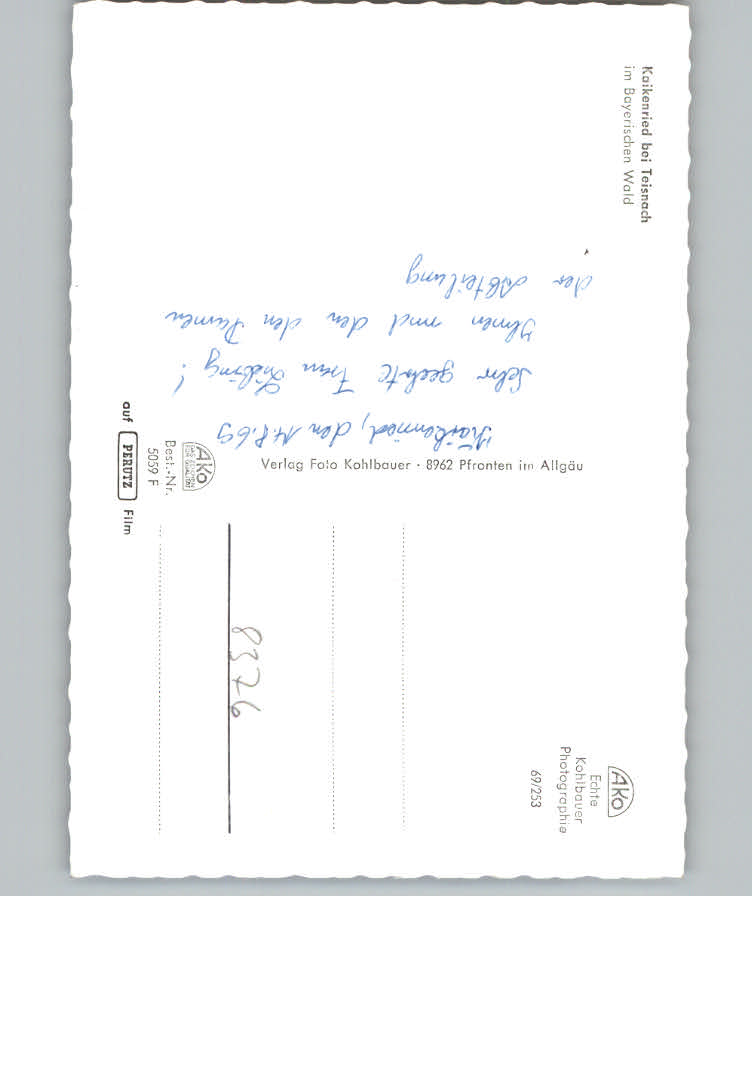 Kaikenried bei Teisnach
im Bayerischen Wald
Kaikenried, den 14.8.69
Sehr geehrte Frau !
Ihnen und den Damen
der Abteilung
Verlag Foto Kohlbauer · 8962 Pfronten im Allgäu
AKO
DAS ZEICHEN
FÜR QUALITÄT
Best.-Nr.
5059 F
auf PERUTZ Film
8376
AKO
Echte
Kohlbauer
Photographie
69/253